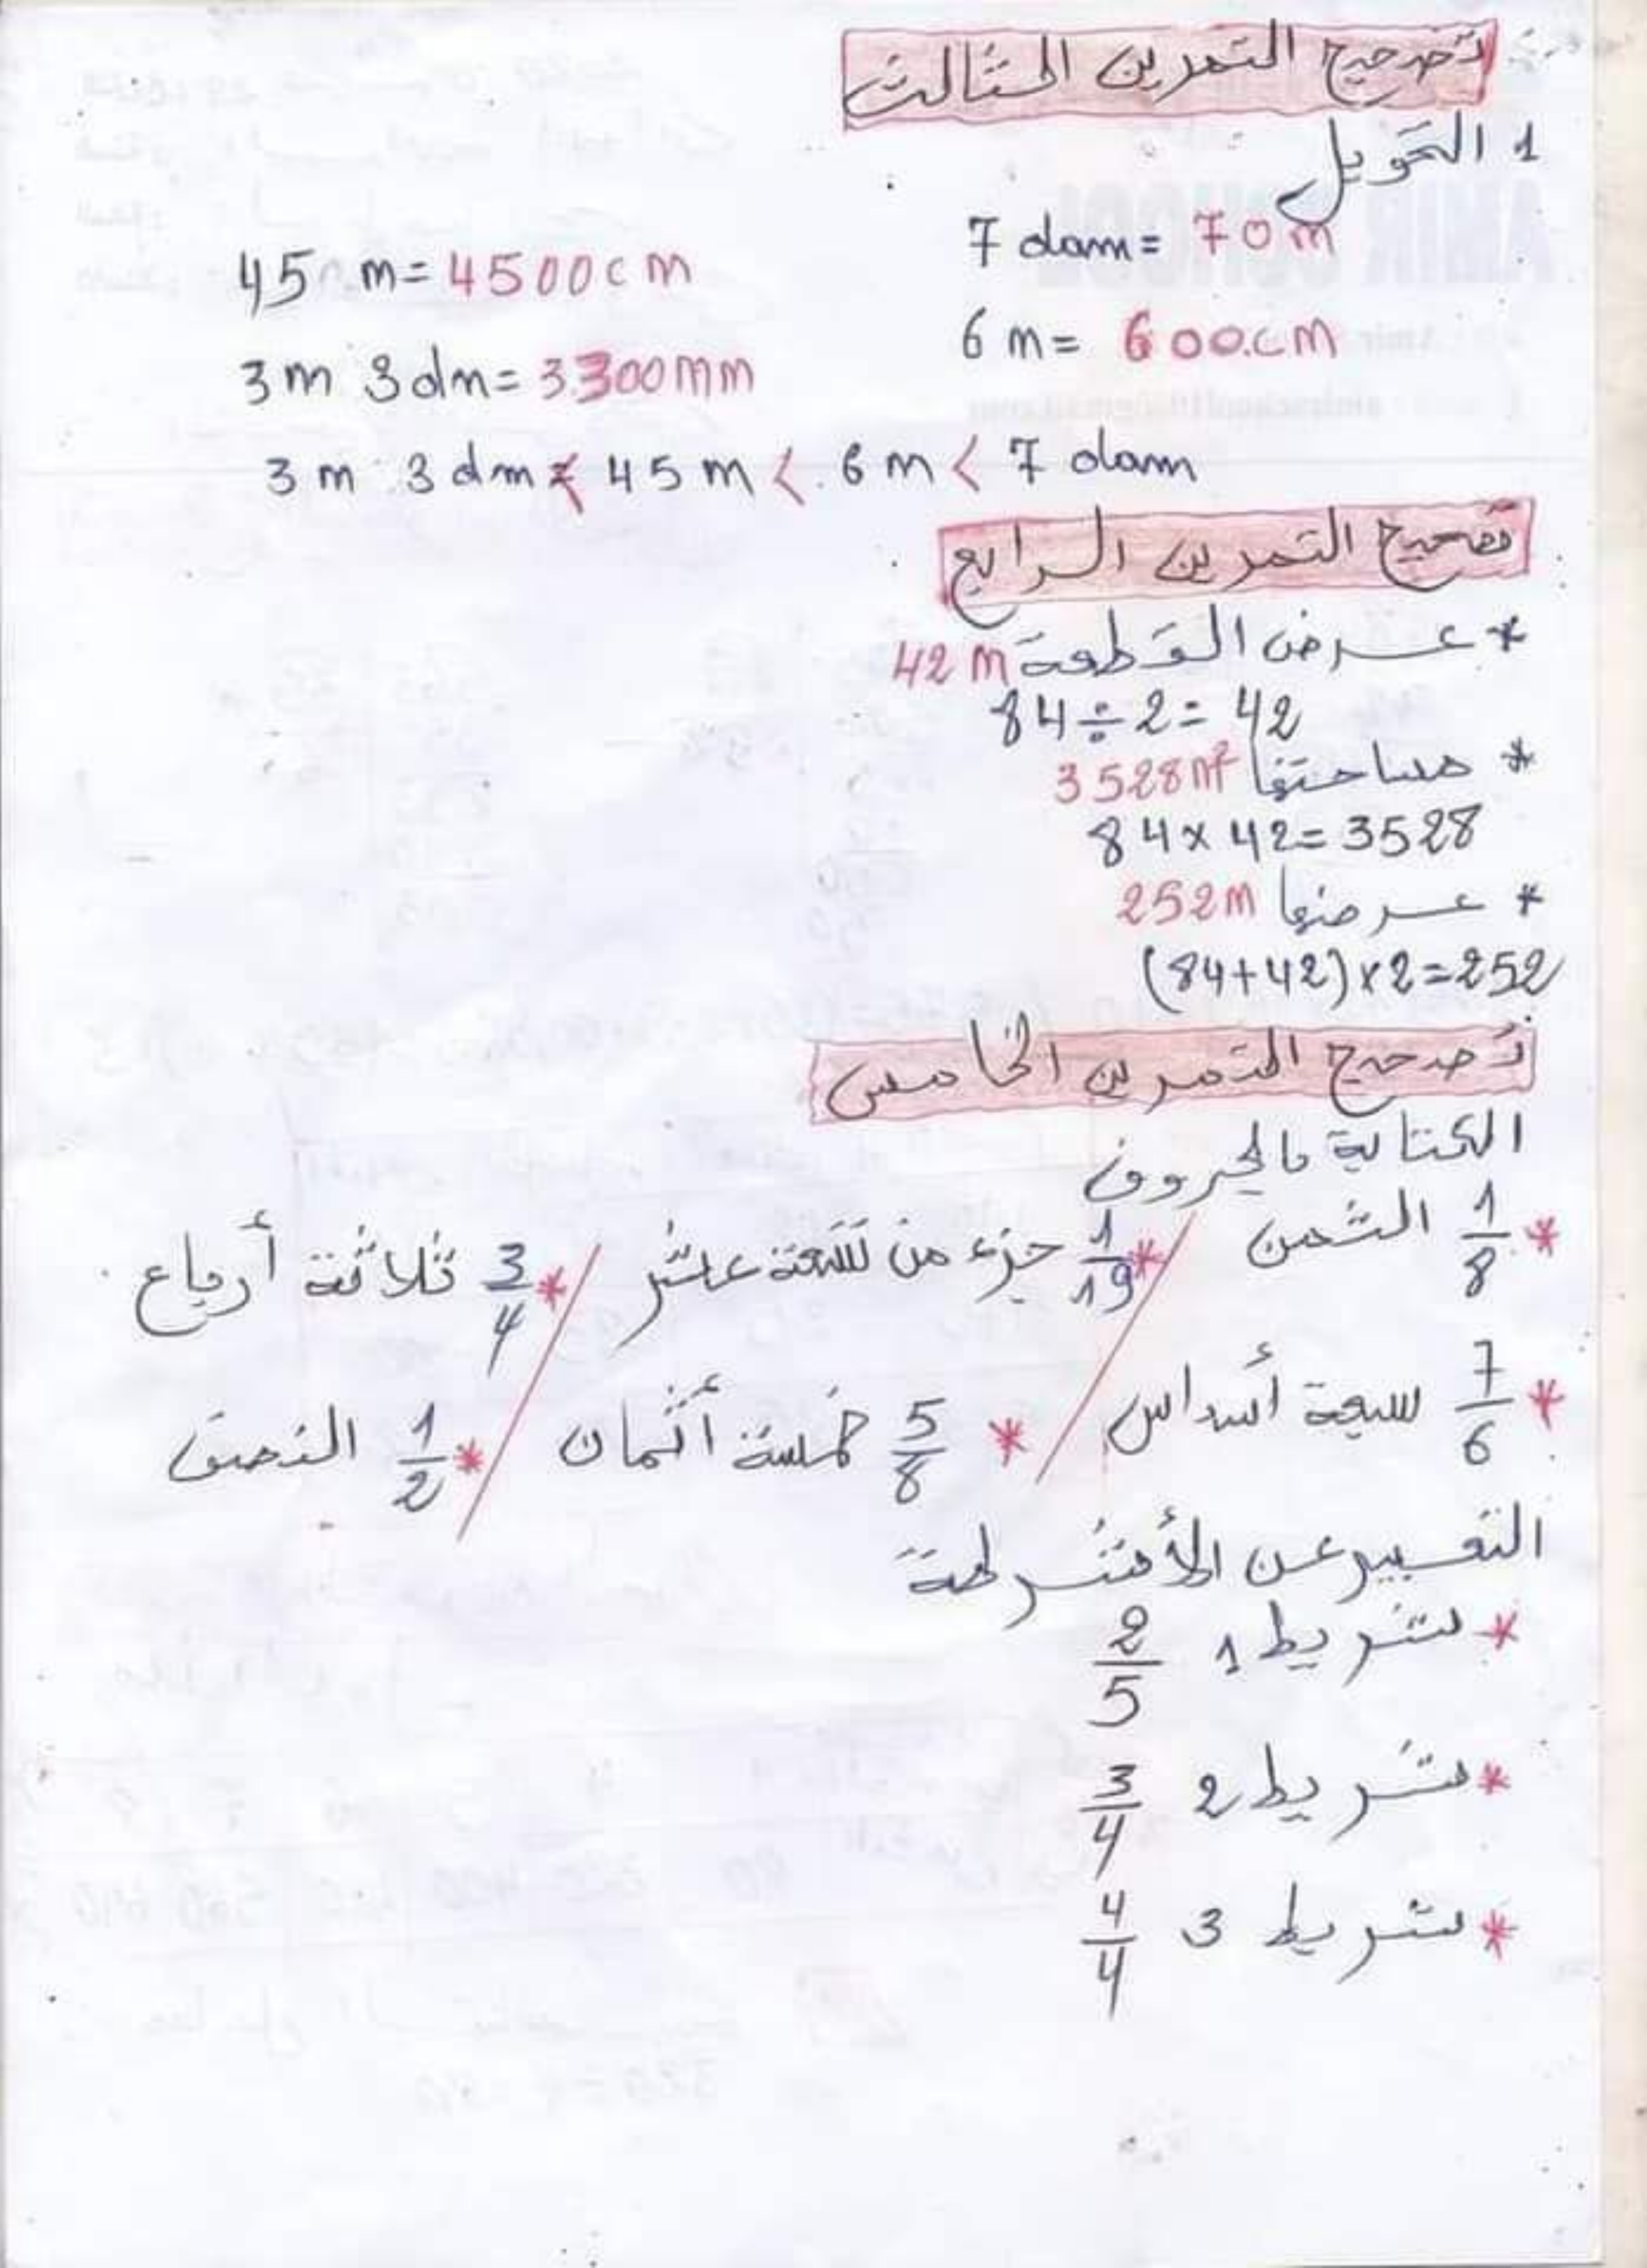 تصحيح التمرين الثالث
1 التحويل
7 dam = 70 m
45 m = 4500 cm
6 m = 600 cm
3 m 3 dm = 3300 mm
3 m 3 dm < 45 m < 6 m < 7 dam
تصحيح التمرين الرابع
* عرض القطعة 42 m
84 ÷ 2 = 42
* مساحتها 3528 m²
84 x 42 = 3528
* عرضها 252 m
(84+42) x 2 = 252
تصحيح التمرين الخامس
الكتابة بالحروف
* 1/8 الثمن / * 1/19 جزء من تسعة عشر / * 3/4 ثلاثة أرباع
* 7/6 سبعة أسداس / * 5/8 خمسة أثمان / * 1/2 النصف
التعبير عن الأشرطة
* شريط 1 2/5
* شريط 2 3/4
* شريط 3 4/4